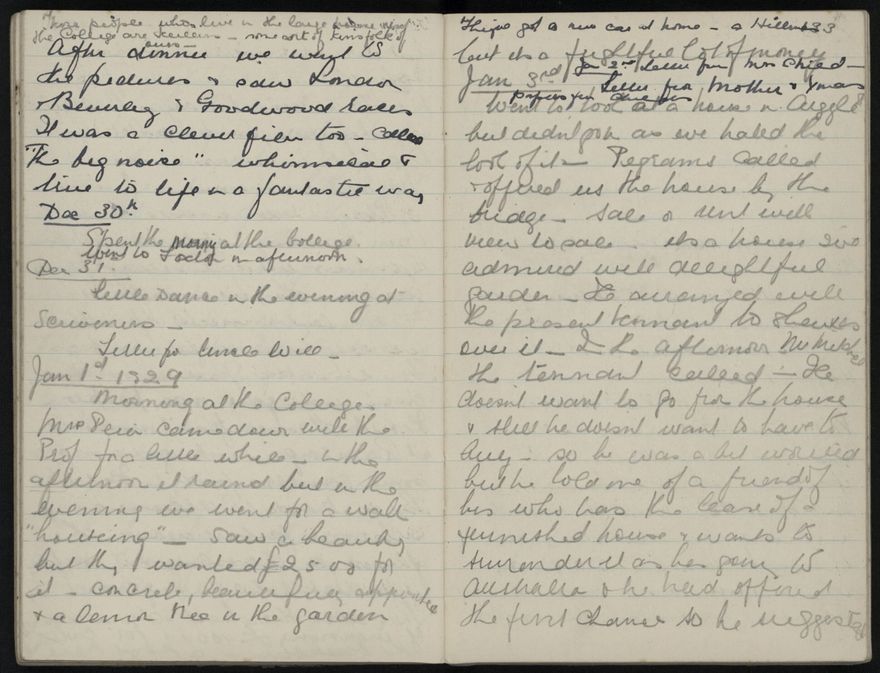 those people who live in the large
the College are Scriveners - some sort of kinsfolk of
ours -
After dinner we went to
the pictures & saw London
& Beverley & Goodwood Races
It was a clever film too - called
"The big noise" whimsical &
true to life in a fantastic way
Dec 30th
Spent the morning at the College.
Went to Factory in afternoon.
Dec 31.
Little Dance in the evening at
Scriveners -
Letter fr Uncle Will -
Jan 1st 1929
Morning at the College.
Mrs came down with the
Prof for a little while - in the
afternoon it rained but in the
evening we went for a walk
"houseing" - Saw a beauty
but they wanted £2500 for
it - concrete, beautifully appointed
& a lemon tree in the garden
They've got a new car at home - a Hillman
33
but its a frightful lot of money
Jan 2nd Letter from Mrs Child -
Jan 3rd
Letter from Mother & Xmas
Went to look at a house in Argyle
but didn't go in as we hated the
look of it - Pegrams called
& offered us the house by the
bridge - Sale or rent with
view to sale - its a house I've
admired with delightful
garden - He arranged with
the present tennant to show us
over it - In the afternoon Mr
the tennant called - He
doesnt want to go from the house
& still he doesnt want to have to
buy - so he was a bit worried
but he told me of a friend of
his who has the lease of a
furnished house & wants to
surrender it as hes going to
Australia & he had offered
the first chance so he suggested